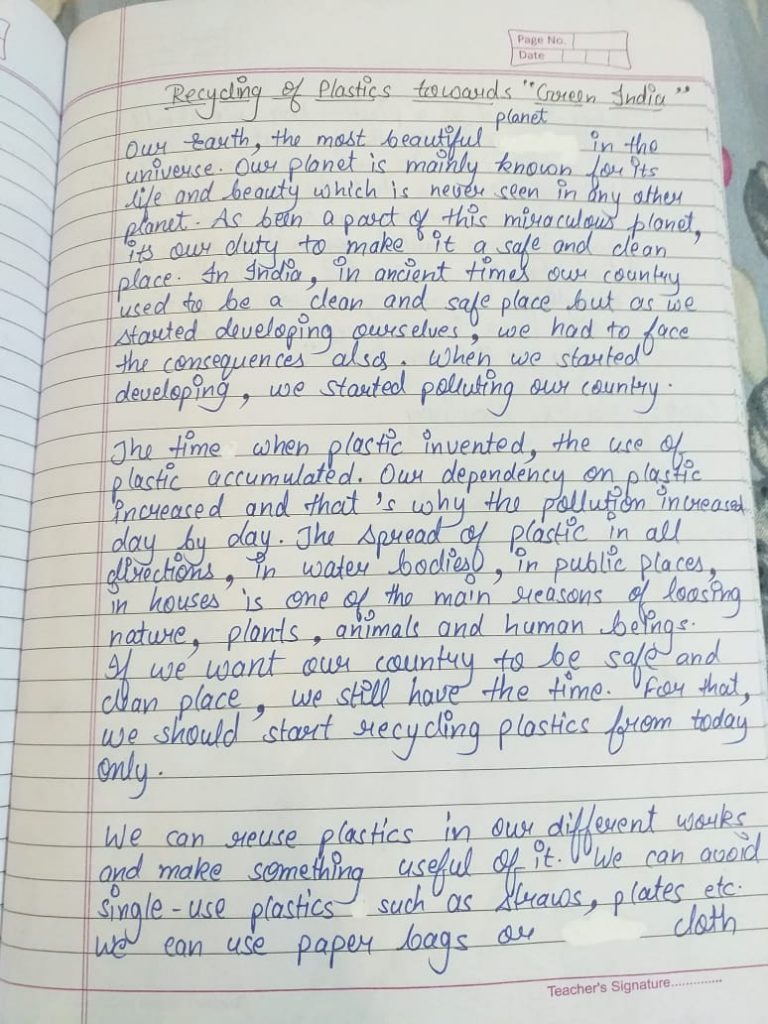 Page No.
Date
Recycling of Plastics towards "Green India"
planet
Our Earth, the most beautiful in the
universe. Our planet is mainly known for its
life and beauty which is never seen in any other
planet. As been a part of this miraculous planet,
its our duty to make it a safe and clean
place. In India, in ancient times our country
used to be a clean and safe place but as we
started developing ourselves, we had to face
the consequences also. When we started
developing, we started polluting our country.
The time when plastic invented, the use of
plastic accumulated. Our dependency on plastic
increased and that's why the pollution increased
day by day. The spread of plastic in all
directions, in water bodies, in public places,
in houses is one of the main reasons of loosing
nature, plants, animals and human beings.
If we want our country to be safe and
clean place, we still have the time. For that,
we should start recycling plastics from today
only.
We can reuse plastics in our different works
and make something useful of it. We can avoid
single-use plastics such as straws, plates etc.
We can use paper bags or cloth
Teacher's Signature..............